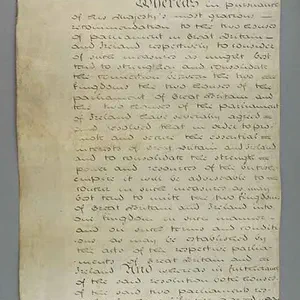 Whereas in pursuance
of his Majesty's most gracious
recommendation to the two Houses
of parliament in Great Britain
and Ireland respectively to consider
of such measures as might best
tend to strengthen and consolidate
the connection between the two
kingdoms the two Houses of the
parliament of Great Britain and
the two Houses of the parliament
of Ireland have severally agreed
and resolved that in order to pro
mote and secure the essential
interests of Great Britain and Ireland
and to consolidate the strength
power and resources of the British
empire it will be adviseable to
concur in such measures as may
best tend to unite the two kingdoms
of Great Britain and Ireland into
one kingdom in such manner
and on such terms and conditi
ons as may be established by
the acts of the respective parlia
ments of Great Britain and
Ireland And whereas in furtherance
of the said resolution both Houses
of the said two parliaments res